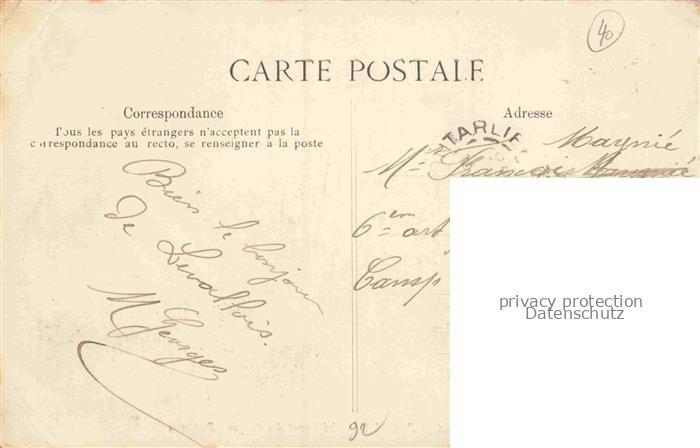 40
CARTE POSTALE
Correspondance
Tous les pays étrangers n'acceptent pas la
correspondance au recto, se renseigner à la poste
Bien le bonjour
de Levallois.
M Georges
Adresse
TARLI
Maynié
Mr Francois
6e art
Camp
privacy protection
Datenschutz
92